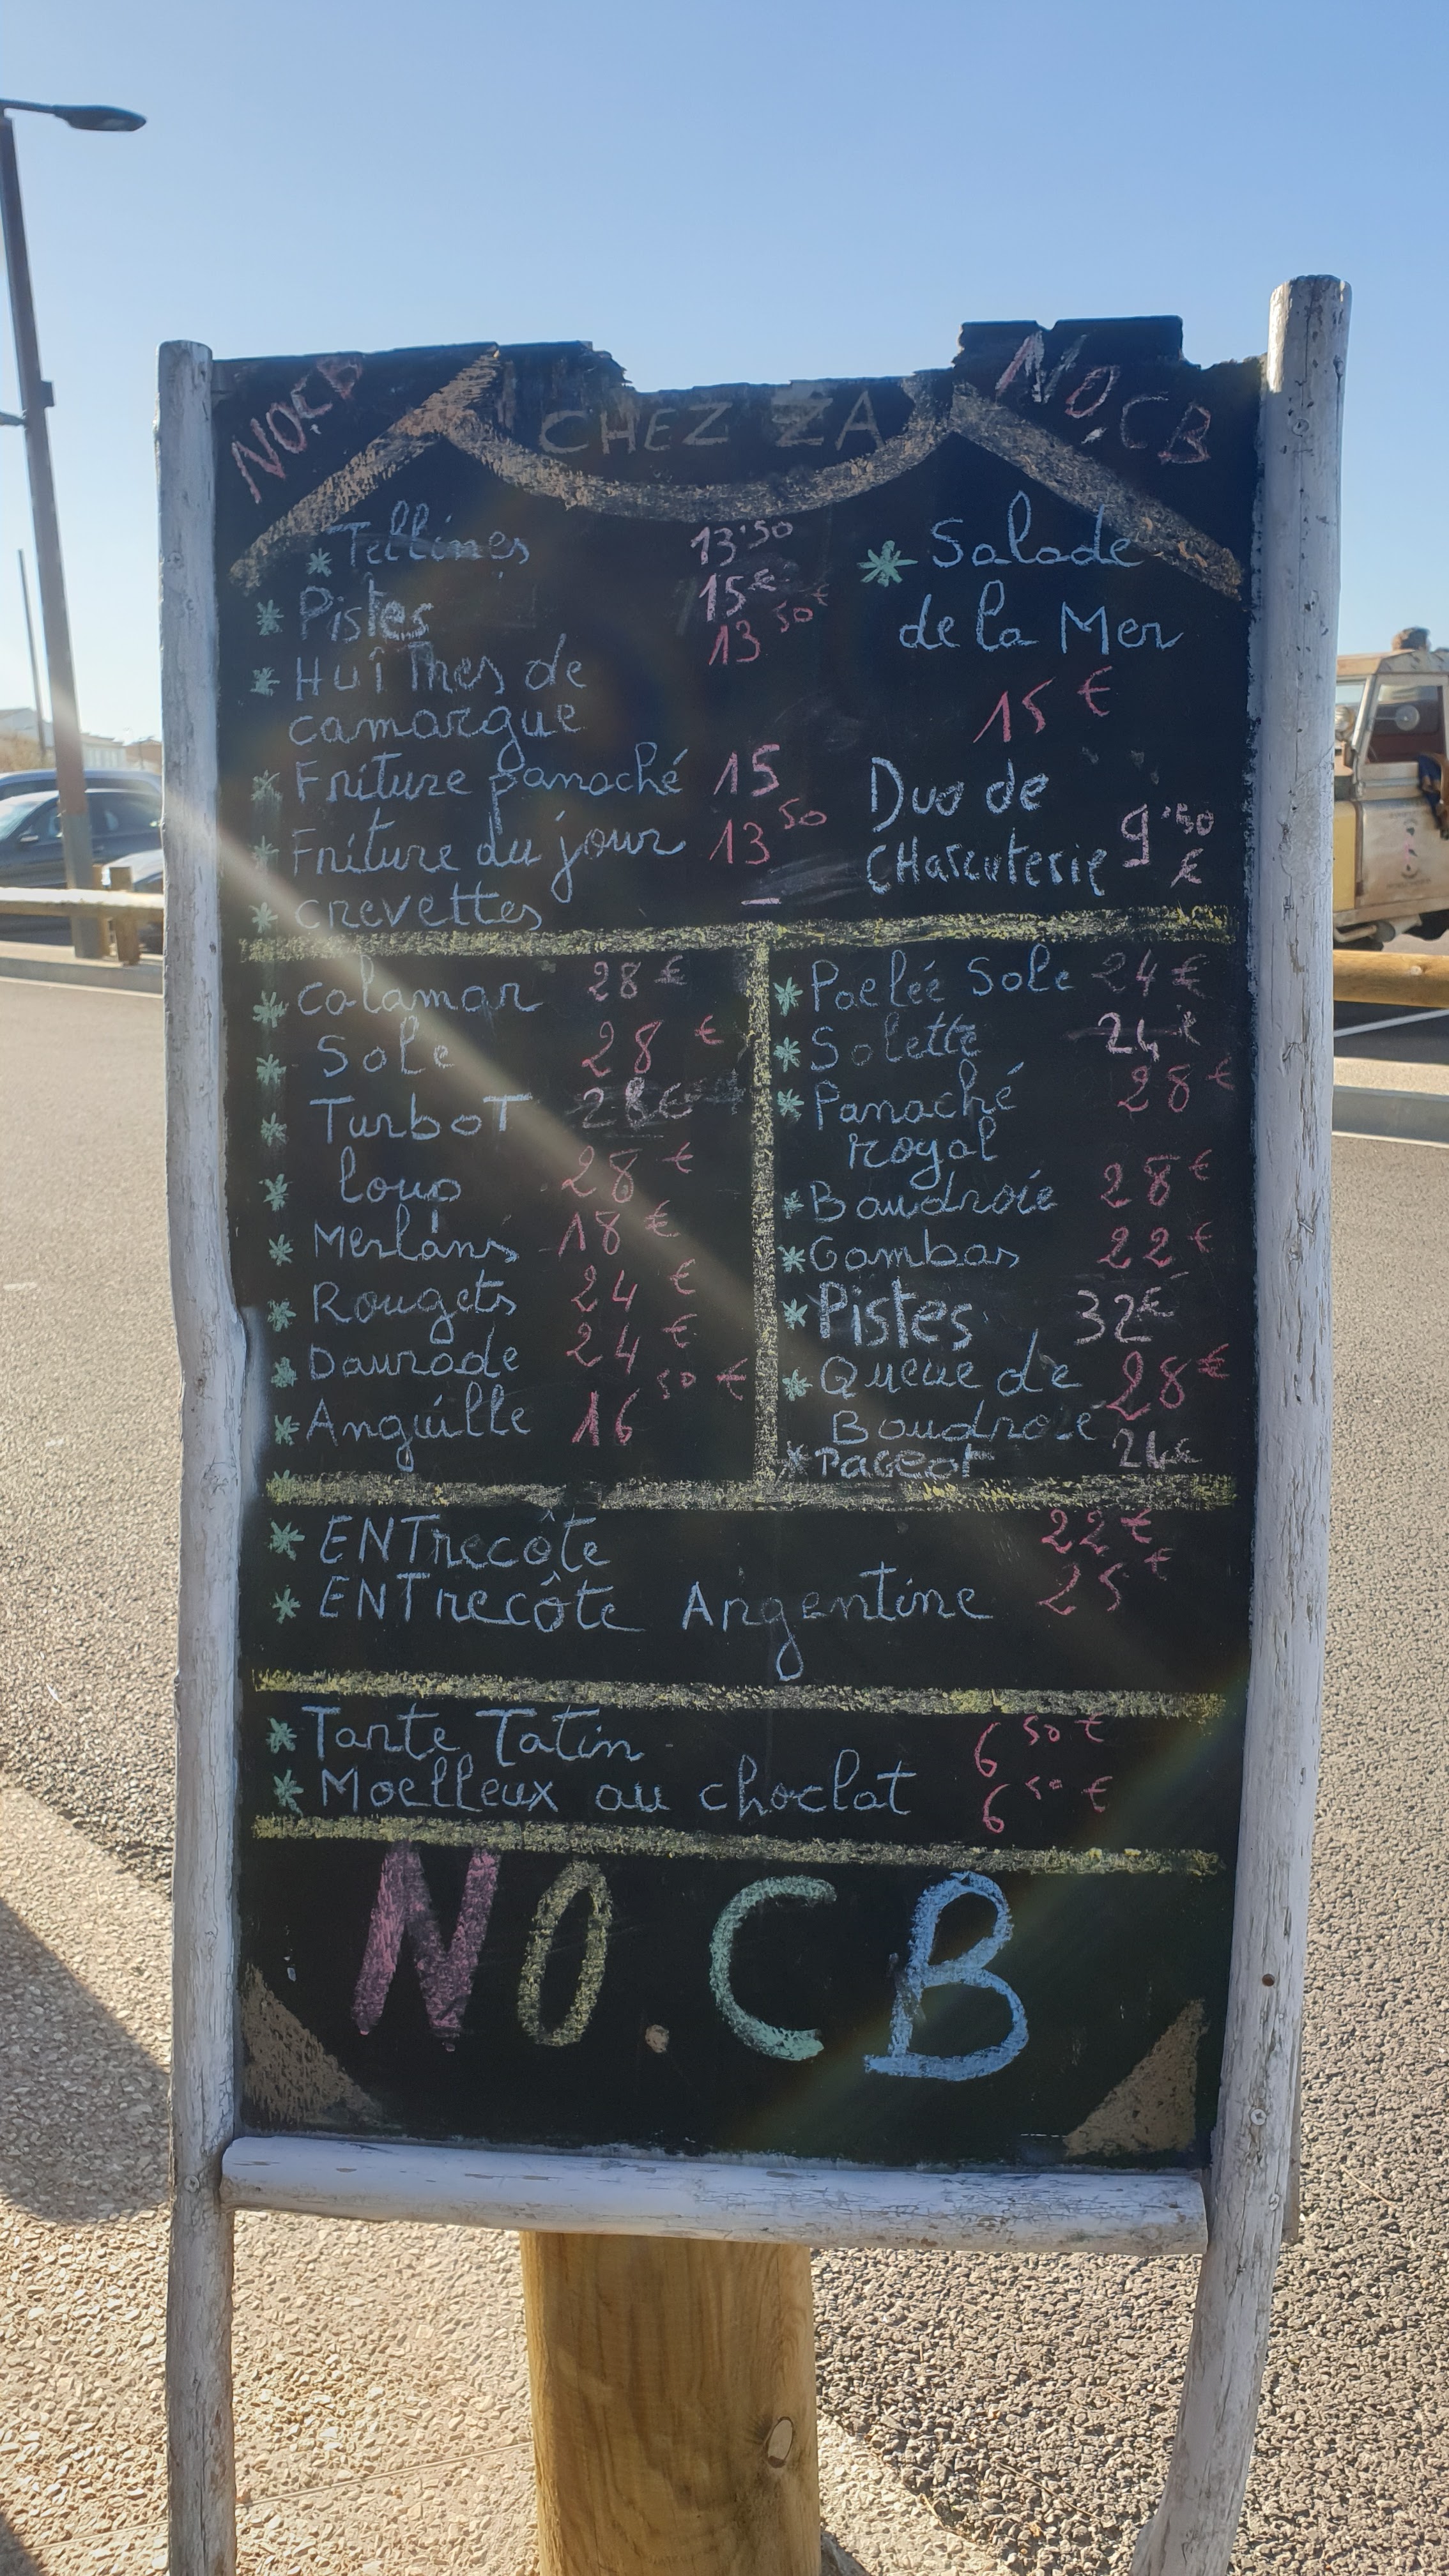 NO.CB
CHEZ ZA
NO.CB
* Tellines 13'50
* Pistes 15€
* Huîtres de 13 50€
camargue
* Friture panaché 15
* Friture du jour 13 50
* crevettes _
* Salade
de la Mer
15 €
Duo de
CHarcuterie 9'50 €
* calamar 28 €
* Sole 28 €
* Turbot 28€
* loup 28 €
* Merlans 18 €
* Rougets 24 €
* Daurade 24 €
* Anguille 16 50 €
* Paeleé Sole 24 €
* Solette 24 €
* Panaché 28 €
royal
* Baudroie 28 €
* Gambas 22 €
* Pistes 32€
* Queue de 28 €
Boudroie
* Pageot 24€
* ENTrecôte 22 €
* ENTrecôte Argentine 25 €
* Tarte Tatin 6 50 €
* Moelleux au choclat 6 50 €
NO.CB